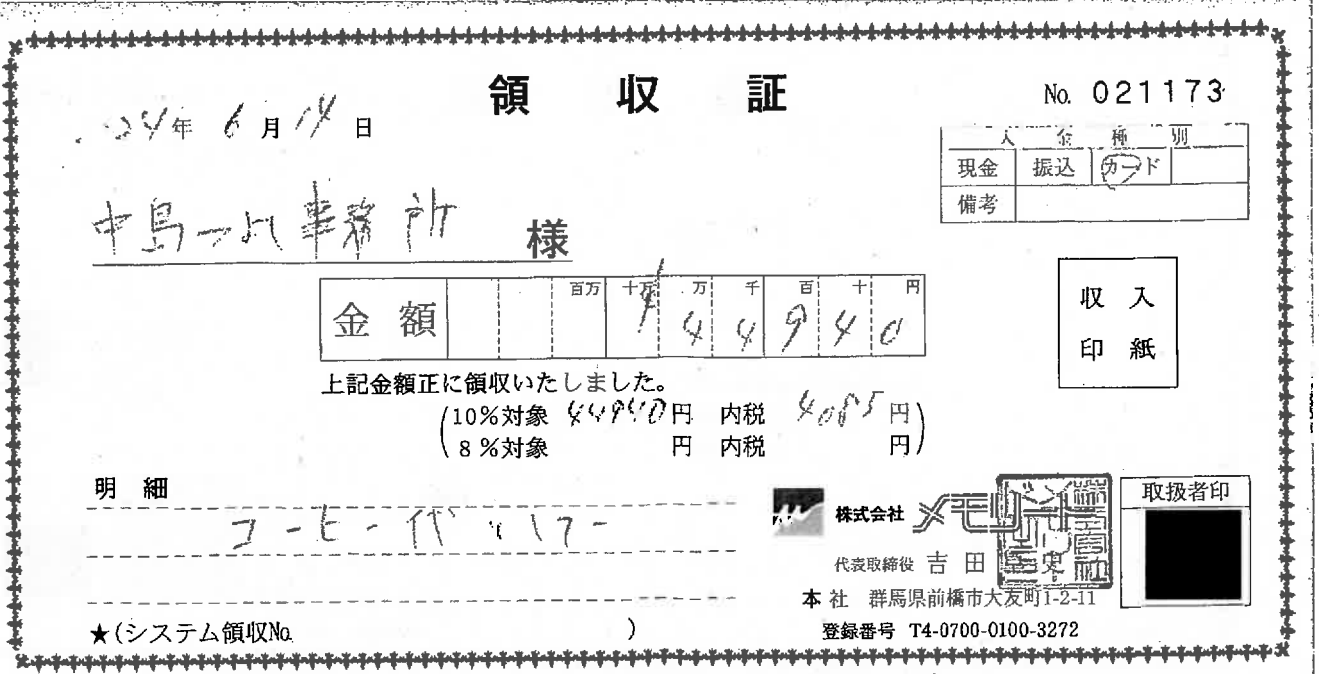 領収証
No. 021173
24年 6月 14日
入金種別
現金 振込 カード
備考
中島 事務所 様
金額 百万 十万 万 千 百 十 円
¥44940
収入
印紙
上記金額正に領収いたしました。
(10%対象 44940円 内税 4085円)
(8%対象 円 内税 円)
明細
コーヒー代
株式会社 メモリード
取扱者印
代表取締役 吉田
本社 群馬県前橋市大友町1-2-11
★(システム領収No. )
登録番号 T4-0700-0100-3272